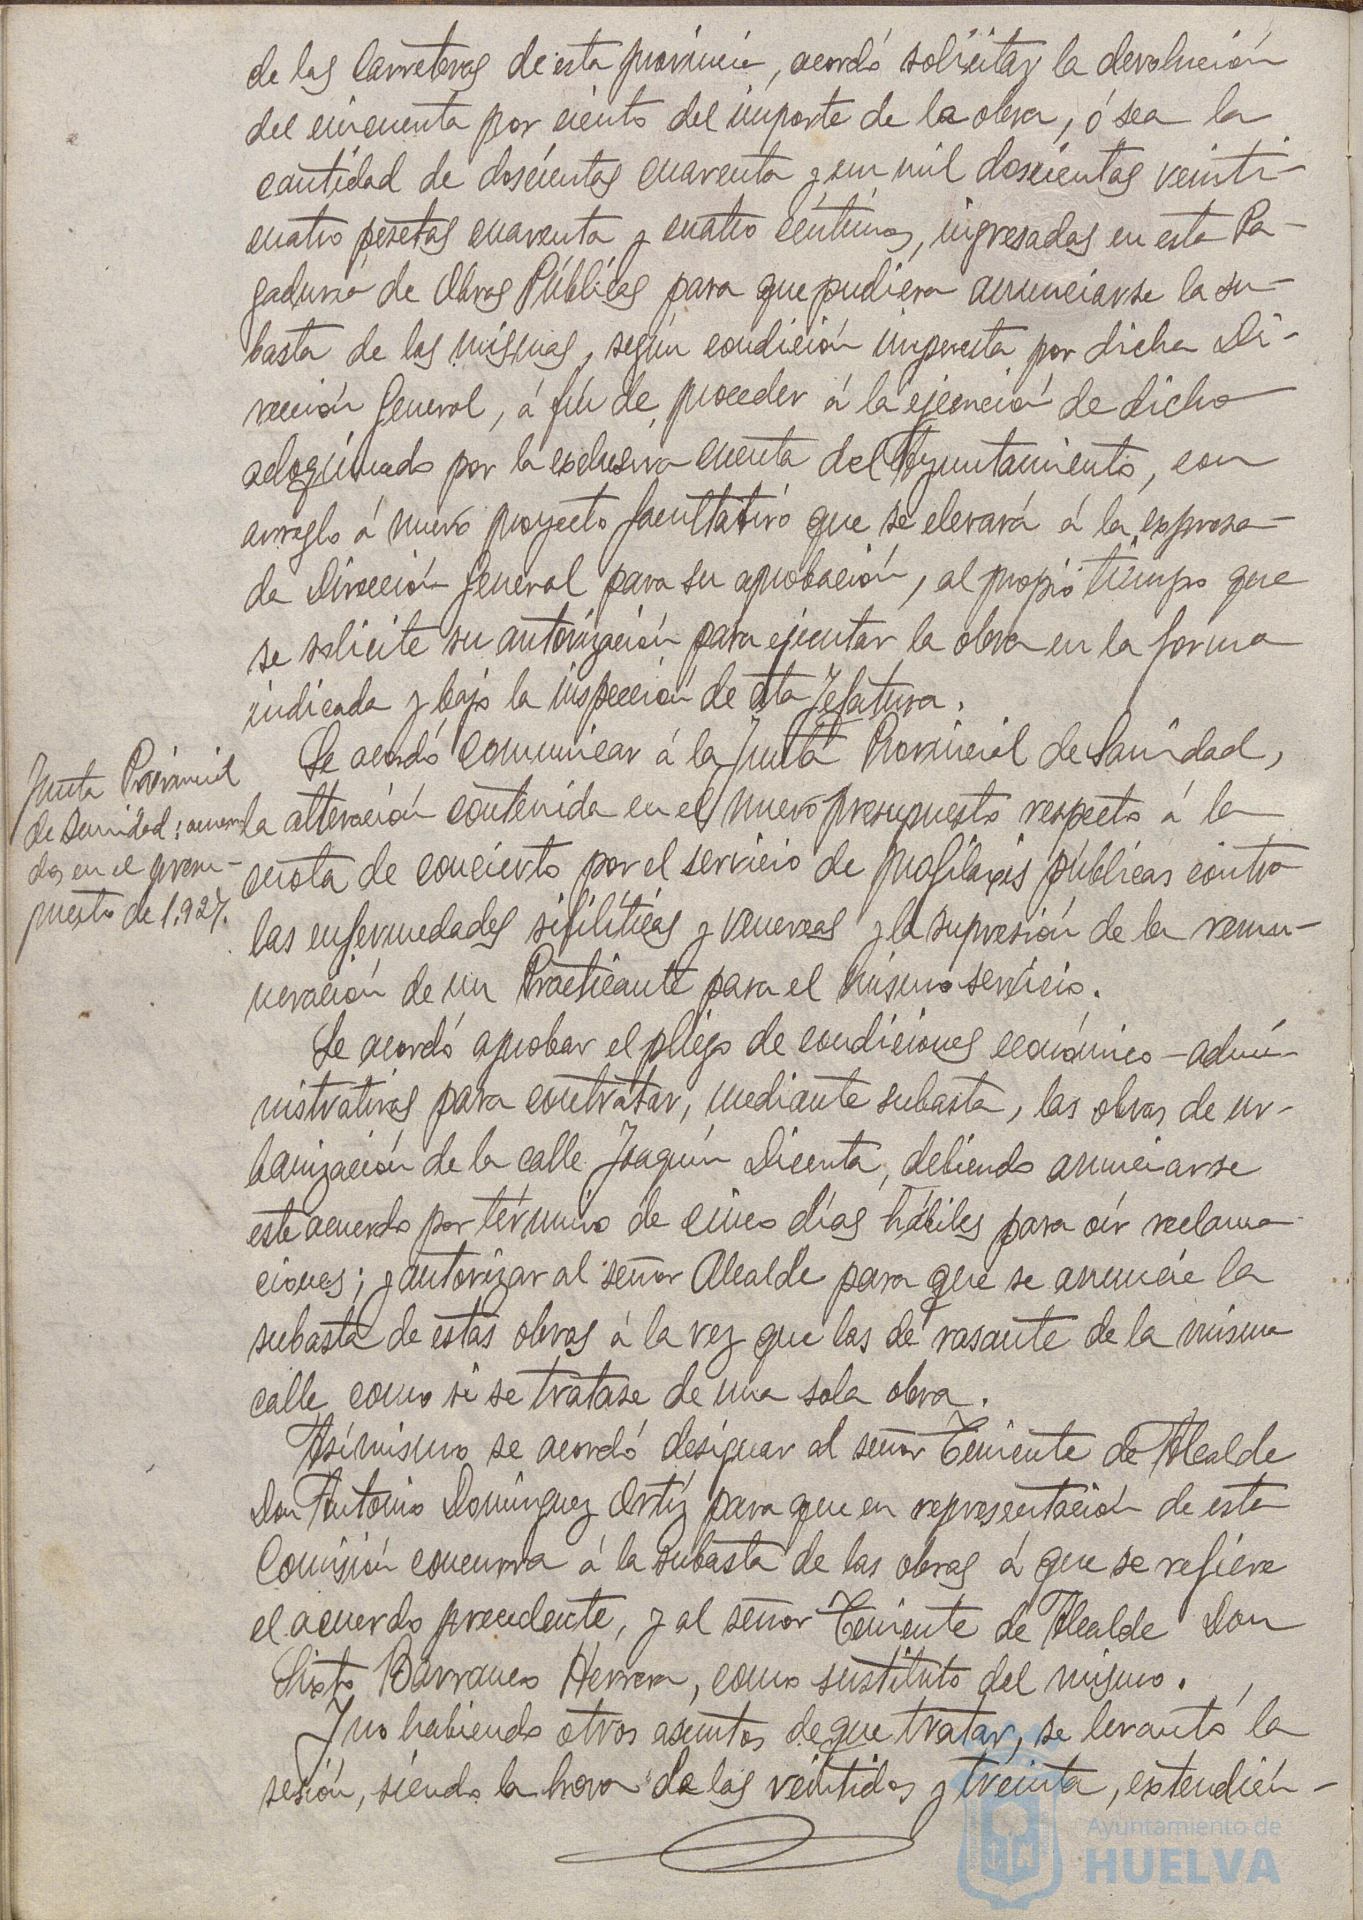 de las Carreteras de esta provincia, acordó solicitar la devolución
del cincuenta por ciento del importe de la obra, ó sea la
cantidad de doscientas cuarenta y un mil doscientas veinti-
cuatro pesetas cuarenta y cuatro céntimos, ingresadas en esta Pa-
gaduría de Obras Públicas para que pudiera anunciarse la su-
basta de las mismas, según condición impuesta por dicha Di-
rección General, á fin de proceder á la ejecución de dicho
adoquinado por la exclusiva cuenta del Ayuntamiento, con
arreglo á nuevo proyecto facultativo que se elevará á la expresa-
da Dirección General para su aprobación, al propio tiempo que
se solicite su autorización para ejecutar la obra en la forma
indicada y bajo la inspección de esta Jefatura.
Junta Provincial
de Sanidad:
dos en el presu-
puesto de 1.927.
Se acordó comunicar á la Junta Provincial de Sanidad,
la alteración contenida en el nuevo presupuesto respecto á la
cuota de concierto por el servicio de profilaxis públicas contra
las enfermedades sifilíticas y venereas y la supresión de la remu-
neración de un Practicante para el mismo servicio.
Se acordó aprobar el pliego de condiciones económico-admi-
nistrativas para contratar, mediante subasta, las obras de ur-
banización de la calle Joaquín Dicenta, debiendo anunciarse
este acuerdo por término de cinco días hábiles para oír reclama
ciones; y autorizar al señor Alcalde para que se anuncie la
subasta de estas obras á la vez que las de rasante de la misma
calle como si se tratase de una sola obra.
Asimismo se acordó designar al señor Teniente de Alcalde
Don Antonio Domínguez Ortíz para que en representación de esta
Comisión concurra á la subasta de las obras á que se refiere
el acuerdo precedente, y al señor Teniente de Alcalde Don
Sixto Barranco Herrera, como sustituto del mismo.
Y no habiendo otros asuntos de que tratar, se levantó la
sesión, siendo la hora de las veintidos y treinta, extendién-
Ayuntamiento de
HUELVA